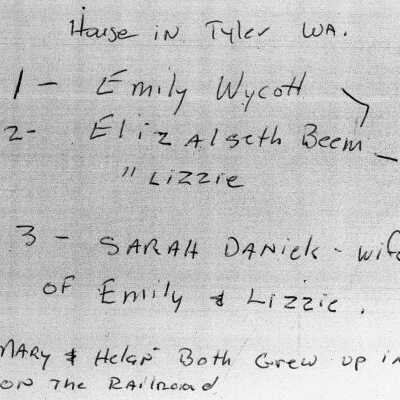 House in Tyler WA.
1 - Emily Wycott
2- Elizabeth Beem
" Lizzie
3 - SARAH DANiek - wife
of Emily & Lizzie.
MARY & Helen Both Grew up in
on The Railroad